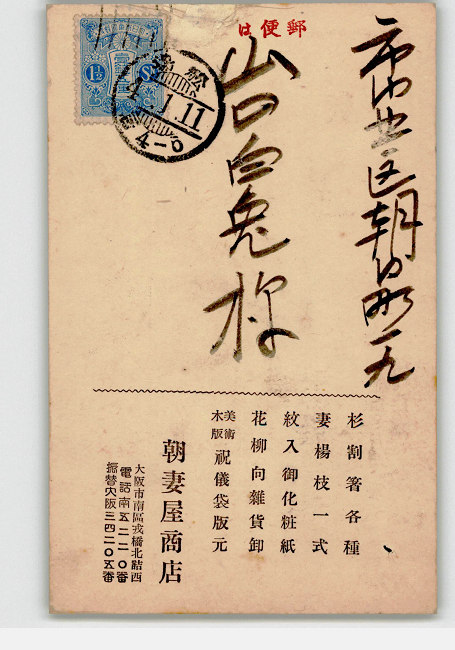 郵便は
市内北区朝日町一九
山口白兎様
杉割箸各種
妻楊枝一式
紋入御化粧紙
花柳向雑貨卸
美術木版 祝儀袋版元
朝妻屋商店
大阪市南區戎橋北詰西
電話南五二二〇番
振替大阪三四二〇五番
1½ Sn
14.1.11
4-0